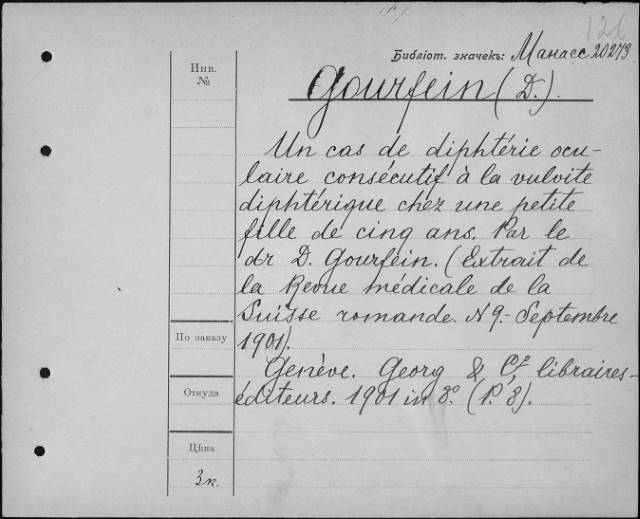 126
Библіот. значекъ: Манасс 20273
Инв.
№
Gourfein (D.).
Un cas de diphtérie ocu-
laire consécutif à la vulvite
diphtérique chez une petite
fille de cinq ans. Par le
dr D. Gourfein. (Extrait de
la Revue médicale de la
Suisse romande. N 9.- Septembre
1901).
Genève. Georg & Cº, libraires-
éditeurs. 1901 in 8º. (P. 8).
По заказу
Откуда
Цѣна
3 к.